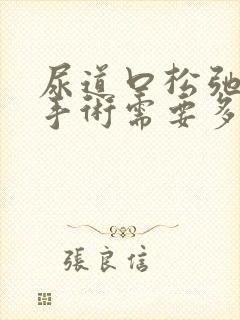 尿道口松弛
手術需要多
張良信